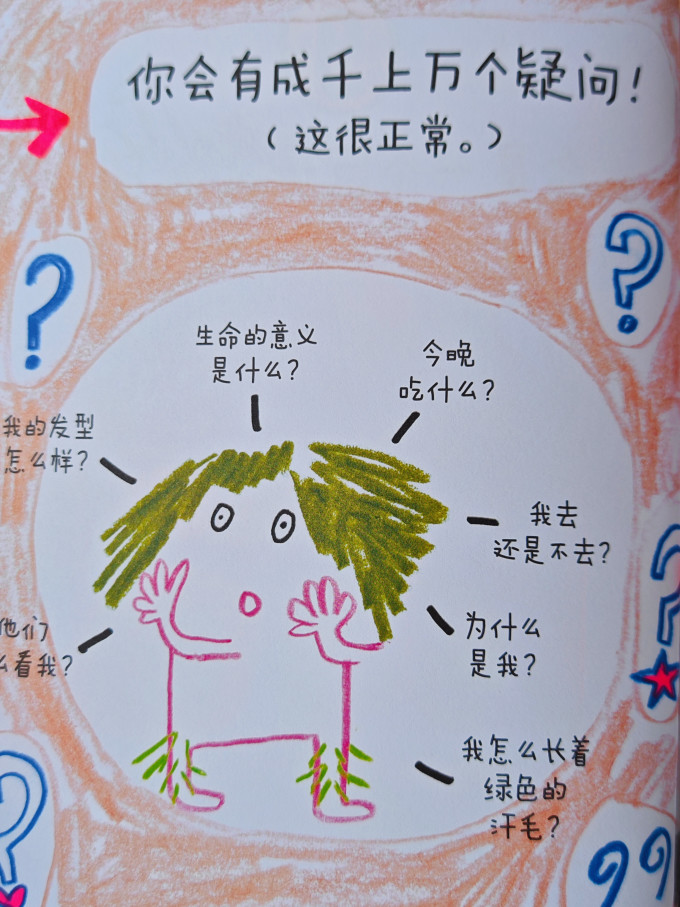 你会有成千上万个疑问！
（这很正常。）
?
?
生命的意义
是什么?
今晚
吃什么?
我的发型
怎么样?
我去
还是不去?
他们
么看我?
为什么
是我?
我怎么长着
绿色的
汗毛?
?
?